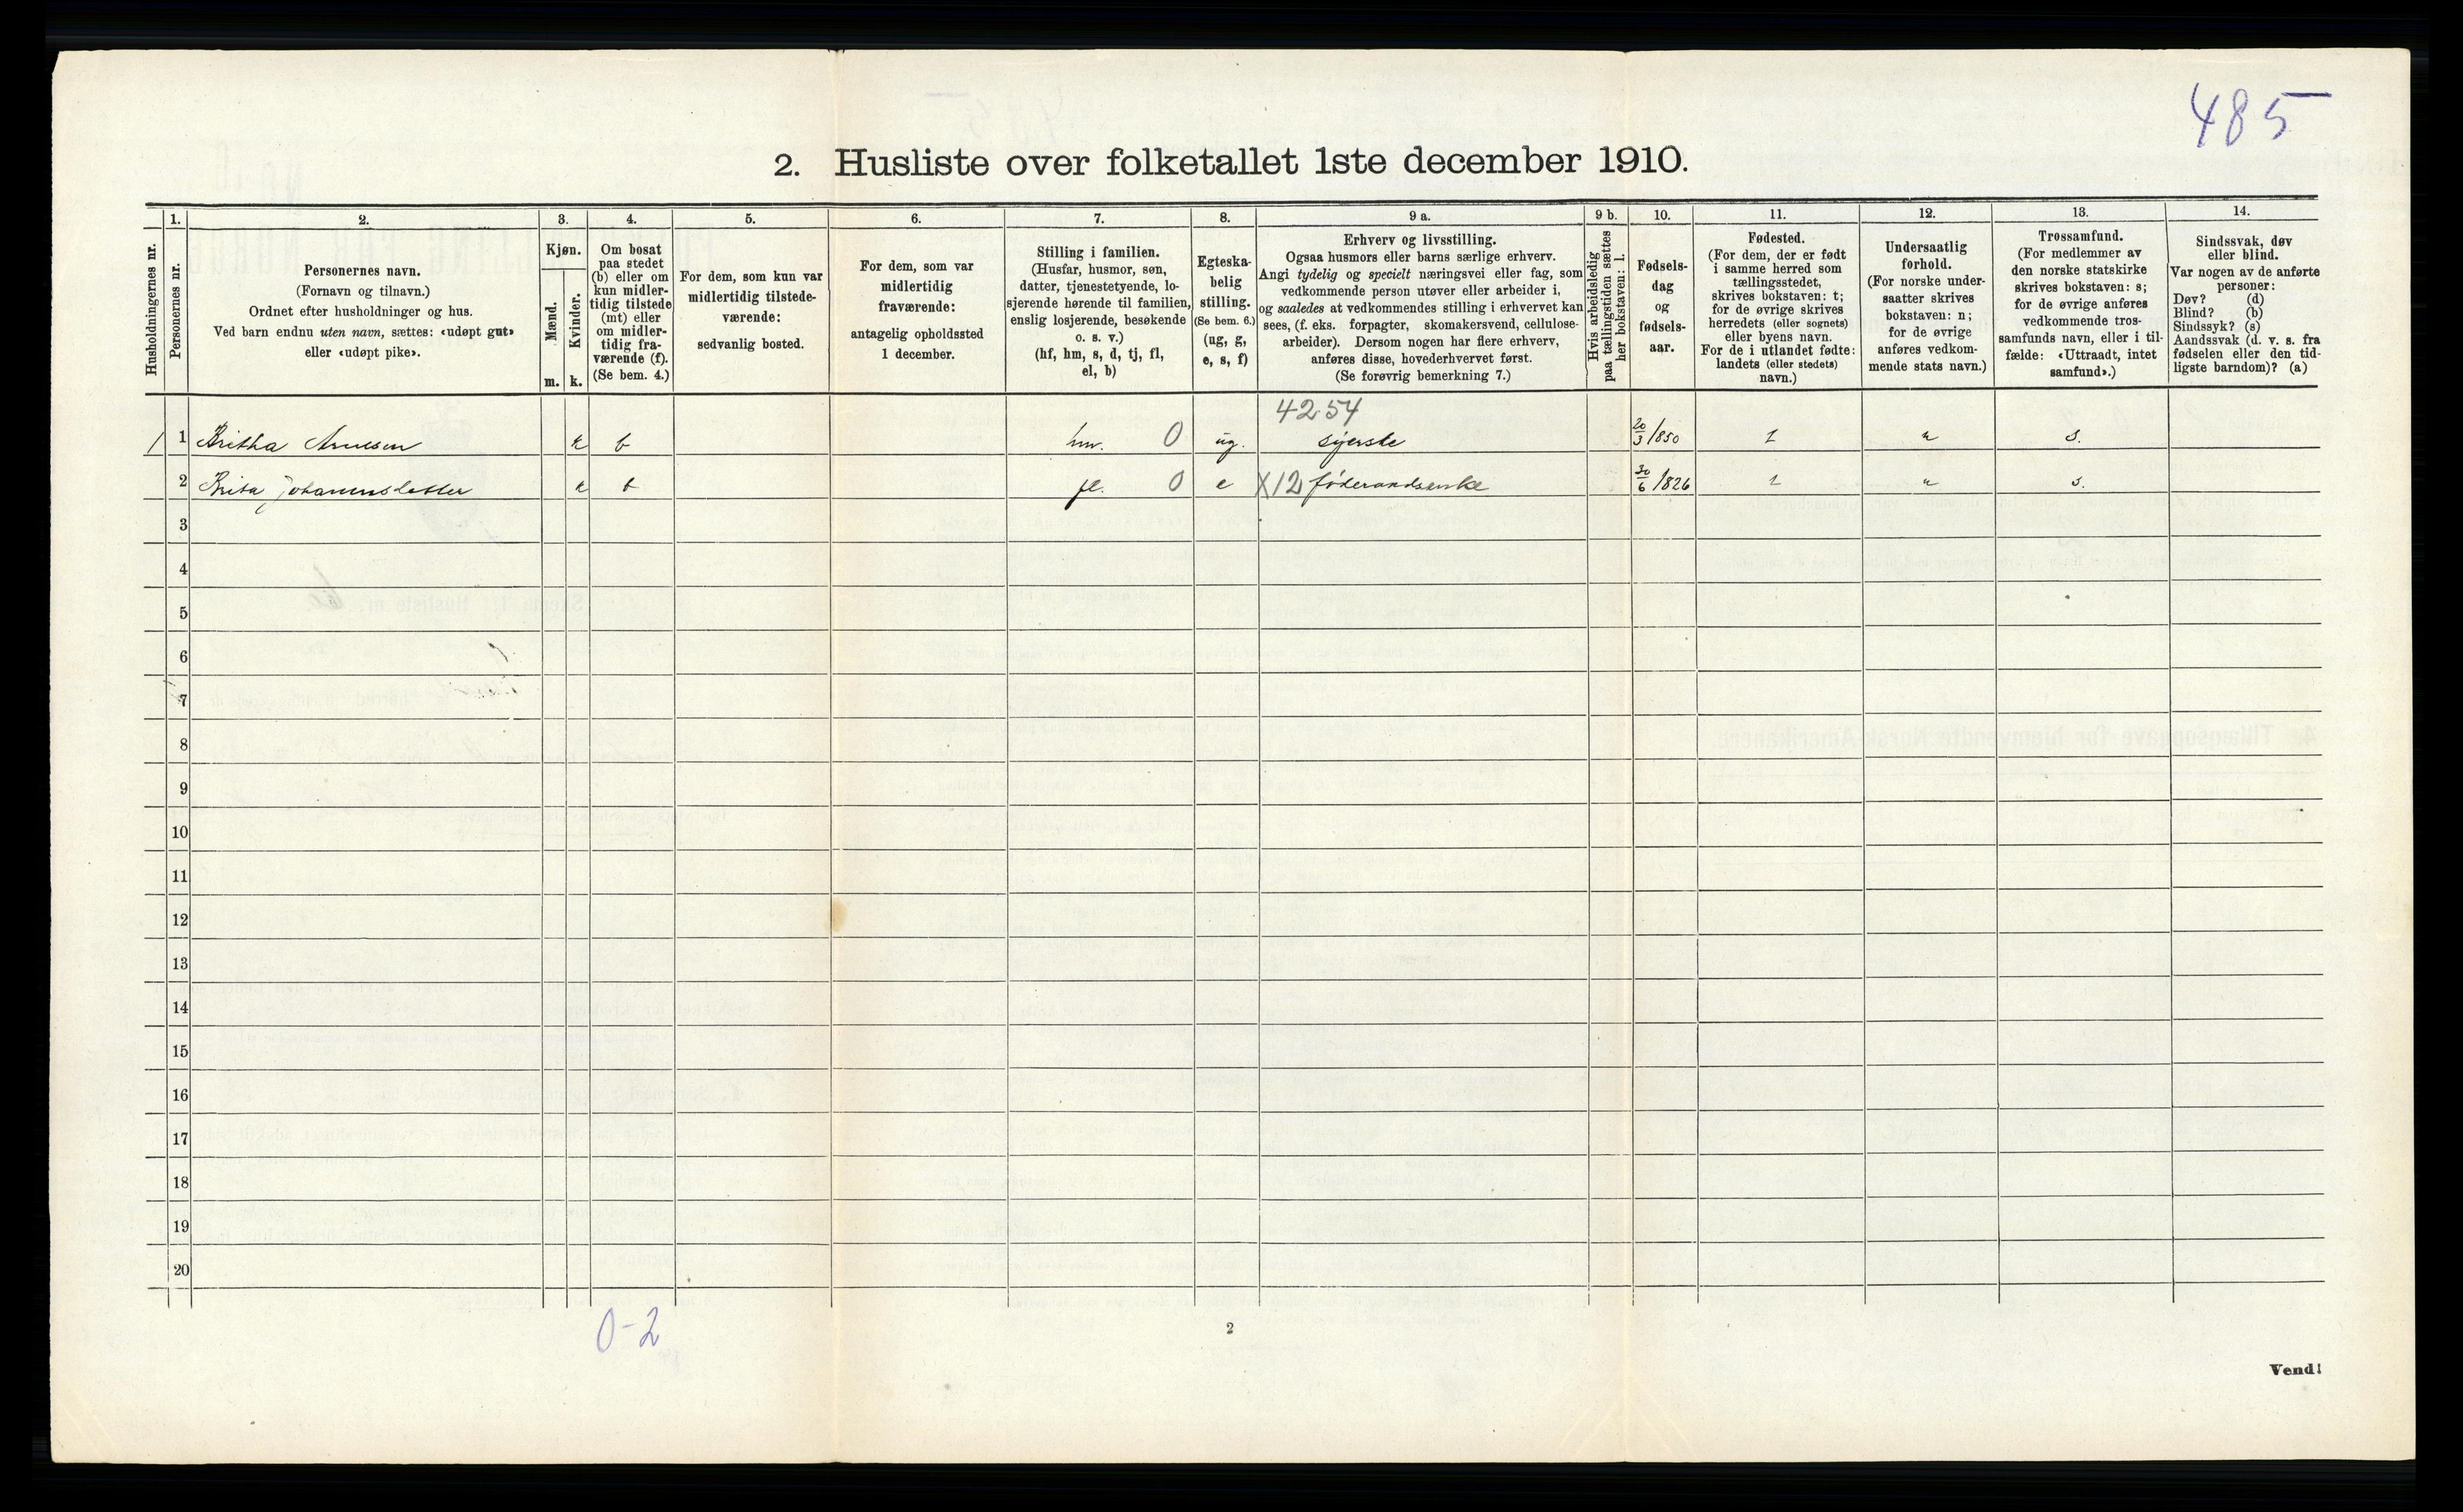 485
2. Husliste over folketallet 1ste december 1910.
1. 2. 3. 4. 5. 6. 7. 8. 9 a. 9 b. 10. 11. 12. 13. 14.
Husholdningernes nr.
Personernes nr.
Personernes navn.
(Fornavn og tilnavn.)
Ordnet efter husholdninger og hus.
Ved barn endnu uten navn, sættes: «udøpt gut»
eller «udøpt pike».
Kjøn.
Mænd.
Kvinder.
m. k.
Om bosat
paa stedet
(b) eller om
kun midler-
tidig tilstede
(mt) eller
om midler-
tidig fra-
værende (f).
(Se bem. 4.)
For dem, som kun var
midlertidig tilstede-
værende:
sedvanlig bosted.
For dem, som var
midlertidig
fraværende:
antagelig opholdssted
1 december.
Stilling i familien.
(Husfar, husmor, søn,
datter, tjenestetyende, lo-
sjerende hørende til familien,
enslig losjerende, besøkende
o. s. v.)
(hf, hm, s, d, tj, fl,
el, b)
Egteska-
belig
stilling.
(Se bem. 6.)
(ug, g,
e, s, f)
Erhverv og livsstilling.
Ogsaa husmors eller barns særlige erhverv.
Angi tydelig og specielt næringsvei eller fag, som
vedkommende person utøver eller arbeider i,
og saaledes at vedkommendes stilling i erhvervet kan
sees, (f. eks. forpagter, skomakersvend, cellulose-
arbeider). Dersom nogen har flere erhverv,
anføres disse, hovederhvervet først.
(Se forøvrig bemerkning 7.)
Hvis arbeidsledig
paa tællingstiden sættes
her bokstaven: l.
Fødsels-
dag
og
fødsels-
aar.
Fødested.
(For dem, der er født
i samme herred som
tællingsstedet,
skrives bokstaven: t;
for de øvrige skrives
herredets (eller sognets)
eller byens navn.
For de i utlandet fødte:
landets (eller stedets)
navn.)
Undersaatlig
forhold.
(For norske under-
saatter skrives
bokstaven: n;
for de øvrige
anføres vedkom-
mende stats navn.)
Trossamfund.
(For medlemmer av
den norske statskirke
skrives bokstaven: s;
for de øvrige anføres
vedkommende tros-
samfunds navn, eller i til-
fælde: «Uttraadt, intet
samfund».)
Sindssvak, døv
eller blind.
Var nogen av de anførte
personer:
Døv? (d)
Blind? (b)
Sindssyk? (s)
Aandssvak (d. v. s. fra
fødselen eller den tid-
ligste barndom)? (a)
4254
1 1 Britha Arnesen k b hm. 0 ug. syerske 20/3/850 t n s.
2 Brita Johannesdatter k b fl. 0 e X12 føderaadsenke 30/6/826 t n s.
3
4
5
6
7
8
9
10
11
12
13
14
15
16
17
18
19
20
0-2
2
Vend!